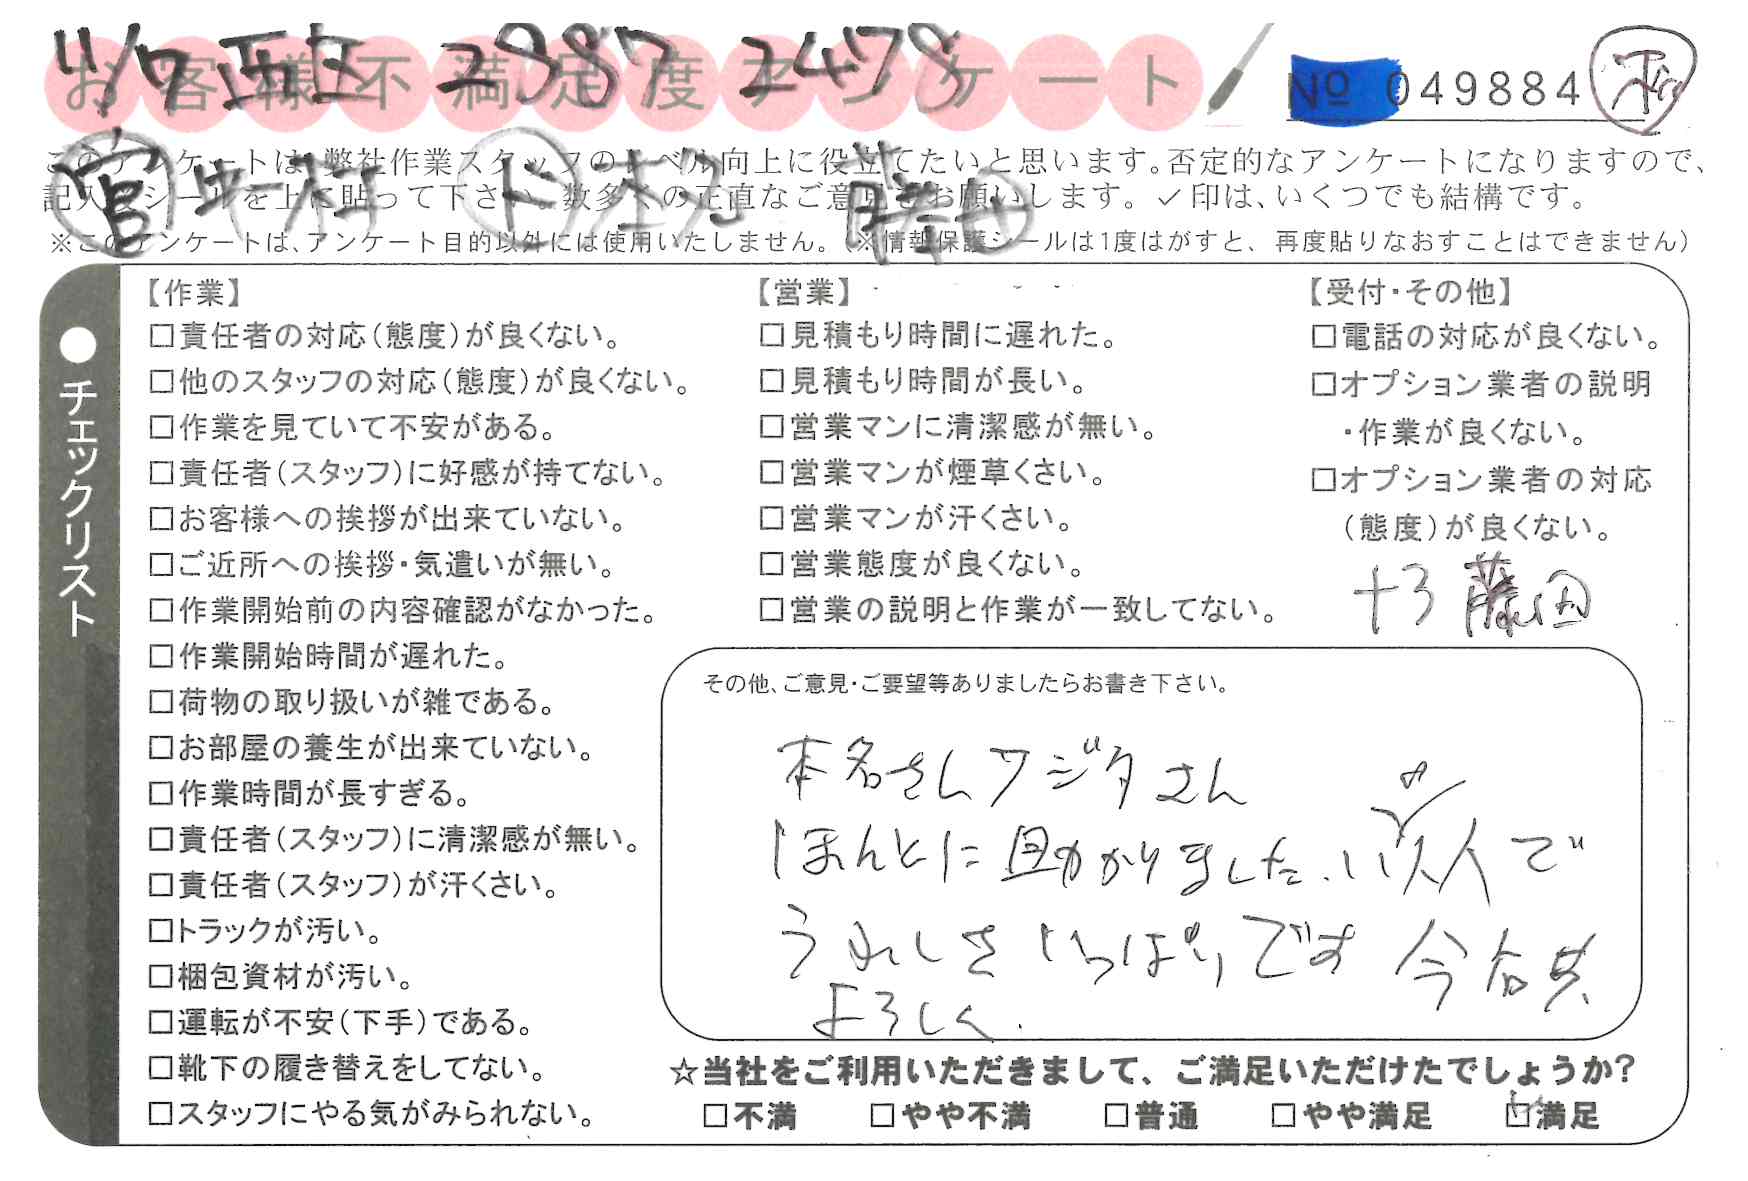 11/7 西区 2387 2478
お客様不満足度アンケート
№ 049884
このアンケートは、弊社作業スタッフのレベル向上に役立てたいと思います。否定的なアンケートになりますので、
記入後シールを上に貼って下さい。数多くの正直なご意見をお願いします。✓印は、いくつでも結構です。
※このアンケートは、アンケート目的以外には使用いたしません。(※情報保護シールは1度はがすと、再度貼りなおすことはできません)
●チェックリスト
【作業】
□責任者の対応(態度)が良くない。
□他のスタッフの対応(態度)が良くない。
□作業を見ていて不安がある。
□責任者(スタッフ)に好感が持てない。
□お客様への挨拶が出来ていない。
□ご近所への挨拶・気遣いが無い。
□作業開始前の内容確認がなかった。
□作業開始時間が遅れた。
□荷物の取り扱いが雑である。
□お部屋の養生が出来ていない。
□作業時間が長すぎる。
□責任者(スタッフ)に清潔感が無い。
□責任者(スタッフ)が汗くさい。
□トラックが汚い。
□梱包資材が汚い。
□運転が不安(下手)である。
□靴下の履き替えをしてない。
□スタッフにやる気がみられない。
【営業】
□見積もり時間に遅れた。
□見積もり時間が長い。
□営業マンに清潔感が無い。
□営業マンが煙草くさい。
□営業マンが汗くさい。
□営業態度が良くない。
□営業の説明と作業が一致してない。
【受付・その他】
□電話の対応が良くない。
□オプション業者の説明
・作業が良くない。
□オプション業者の対応
(態度)が良くない。
藤田
その他、ご意見・ご要望等ありましたらお書き下さい。
本名さんフジタさん
ほんとに助かりました、いい人で
うれしさいっぱいです 今后共
よろしく.
☆当社をご利用いただきまして、ご満足いただけたでしょうか?
□不満 □やや不満 □普通 □やや満足 ☑満足